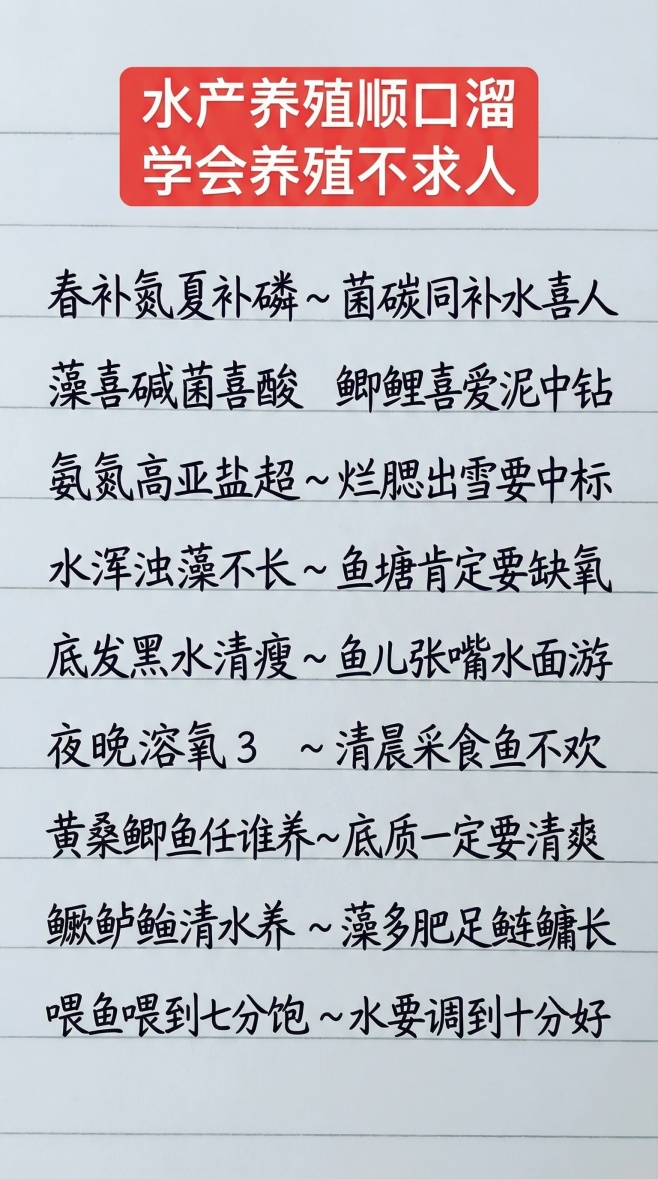 水产养殖顺口溜
学会养殖不求人
春补氮夏补磷~菌碳同补水喜人
藻喜碱菌喜酸 鲫鲤喜爱泥中钻
氨氮高亚盐超~烂腮出雪要中标
水浑浊藻不长~鱼塘肯定要缺氧
底发黑水清瘦~鱼儿张嘴水面游
夜晚溶氧3 ~清晨采食鱼不欢
黄桑鲫鱼任谁养~底质一定要清爽
鳜鲈鲺清水养~藻多肥足鲢鳙长
喂鱼喂到七分饱~水要调到十分好